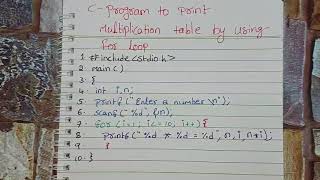 C-Program to Print
Multiplication table by using
For loop
1. #include<stdio.h>
2. main()
3. {
4. int i,n;
5. printf("Enter a number \n");
6. scanf("%d",&n);
7. for(i=1; i<=10, i++){
8. printf("%d * %d = %d", n, i, n*i);
9. }
10. }